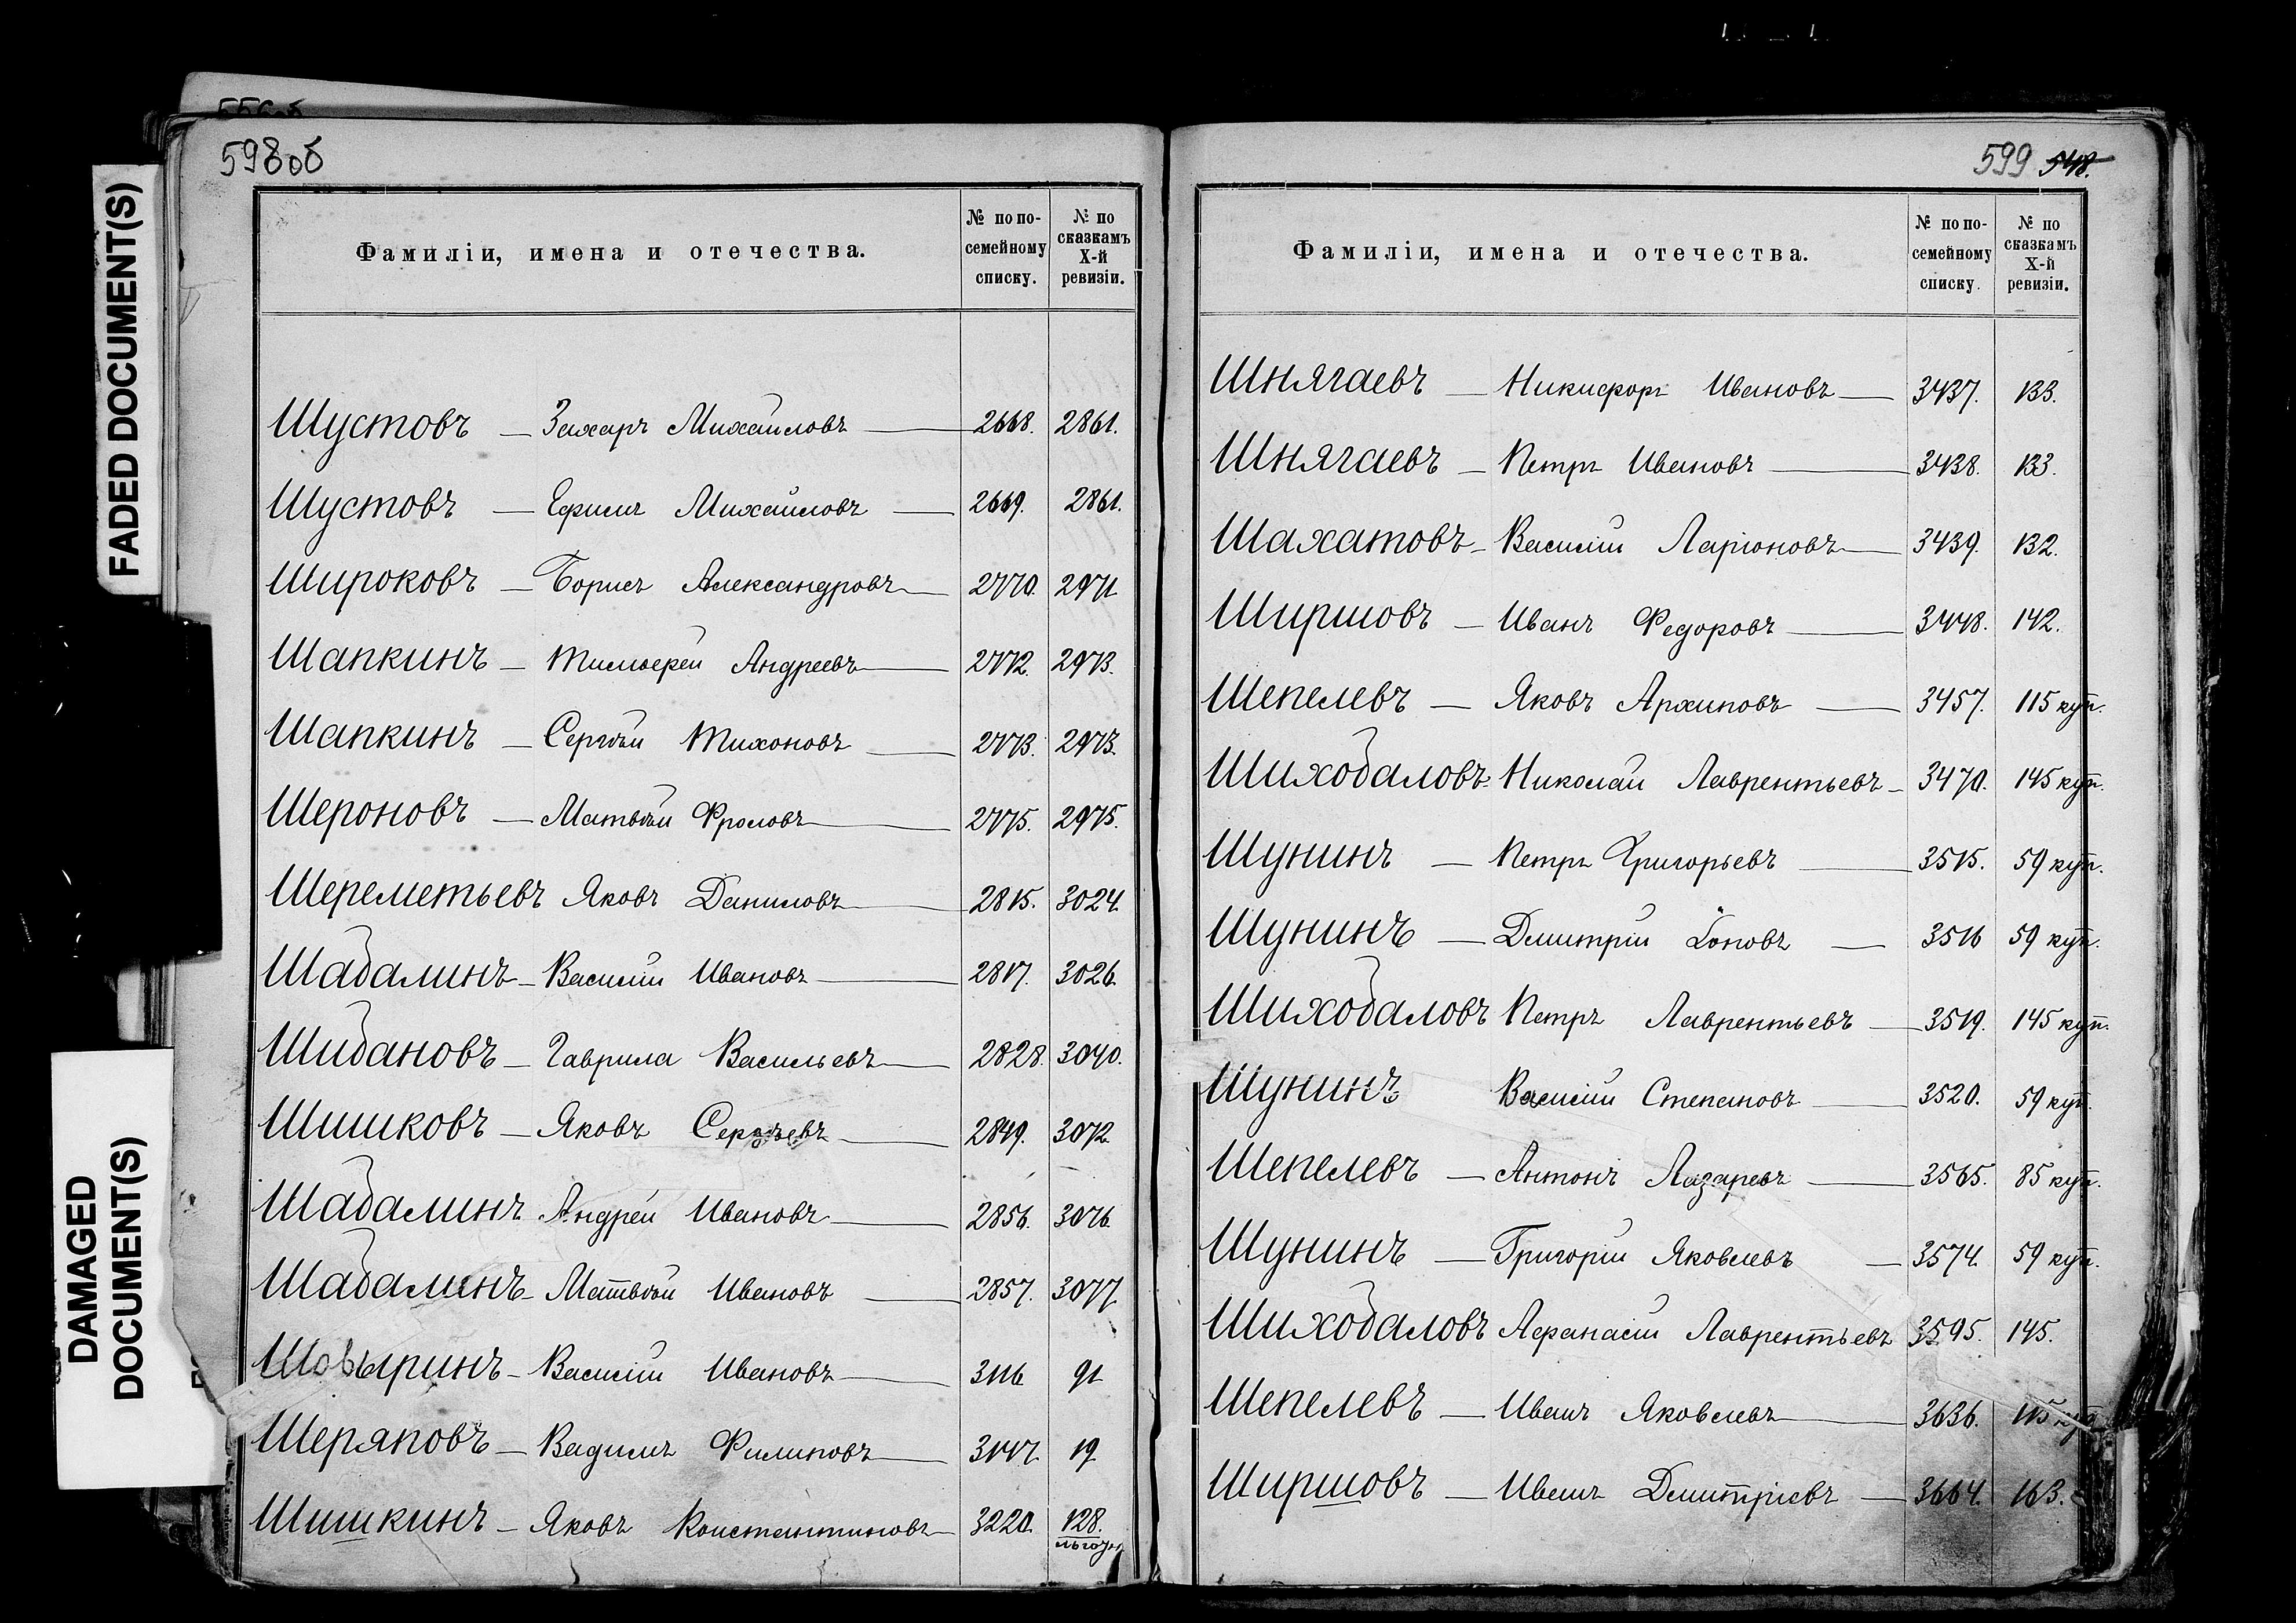 FADED DOCUMENT(S)
DAMAGED
DOCUMENT(S)
598об
Фамиліи, имена и отечества.
№ по по-
семейному
списку.
№ по
сказкамъ
X-й
ревизіи.
Шустовъ — Захаръ Михайловъ — 2668. 2861.
Шустовъ — Ефимъ Михайловъ — 2669. 2861.
Широковъ — Борисъ Александровъ — 2770. 2971
Шапкинъ — Тимофей Андреевъ — 2772. 2973.
Шапкинъ — Сергѣй Тихоновъ — 2773. 2973.
Шероновъ — Матвѣй Фроловъ — 2775. 2975.
Шереметьевъ Яковъ Даниловъ — 2815. 3024.
Шабалинъ — Василій Ивановъ — 2817. 3026.
Шибановъ — Гаврила Васильевъ — 2828. 3040.
Шишковъ — Яковъ Сергѣевъ — 2849. 3072
Шабалинъ Андрей Ивановъ — 2856. 3076.
Шабалинъ — Матвѣй Ивановъ — 2857. 3077
Шовыринъ — Василій Ивановъ — 3116 91
Шеряповъ — Вадимъ Филиповъ — 19
Шишкинъ — Яковъ Константиновъ — 3220. 128.
599 548.
Фамиліи, имена и отечества.
№ по по-
семейному
списку.
№ по
сказкамъ
X-й
ревизіи.
Шнягаевъ — Никифоръ Ивановъ — 3437. 133.
Шнягаевъ — Петръ Ивановъ — 3438. 133.
Шахатовъ — Василій Ларіоновъ — 3439. 132.
Ширшовъ — Иванъ Федоровъ — 3448. 142.
Шепелевъ — Яковъ Архиповъ — 3457. 115 куп.
Шиходаловъ — Николай Лаврентьевъ — 3470. 145 куп.
Шунинъ — Петръ Григорьевъ — 3515. 59 куп.
Шунинъ — Дмитрій — 3516 59 куп.
Шиходаловъ Петръ Лаврентьевъ — 3519. 145 куп.
Шунинъ Василій Степановъ — 3520. 59 куп.
Шепелевъ — Антонъ Лазаревъ — 3565. 85 куп.
Шунинъ — Григорій Яковлевъ — 3574. 59 куп.
Шиходаловъ Афанасій Лаврентьевъ 3595. 145.
Шепелевъ — Иванъ Яковлевъ — 3636. 115 куп
Ширшовъ — Иванъ Дмитріевъ — 3664. 163.